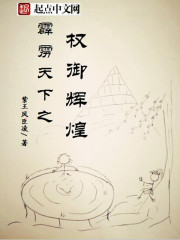 起点中文网
霹雳天下之
权御辉煌
紫王风臣凌/著